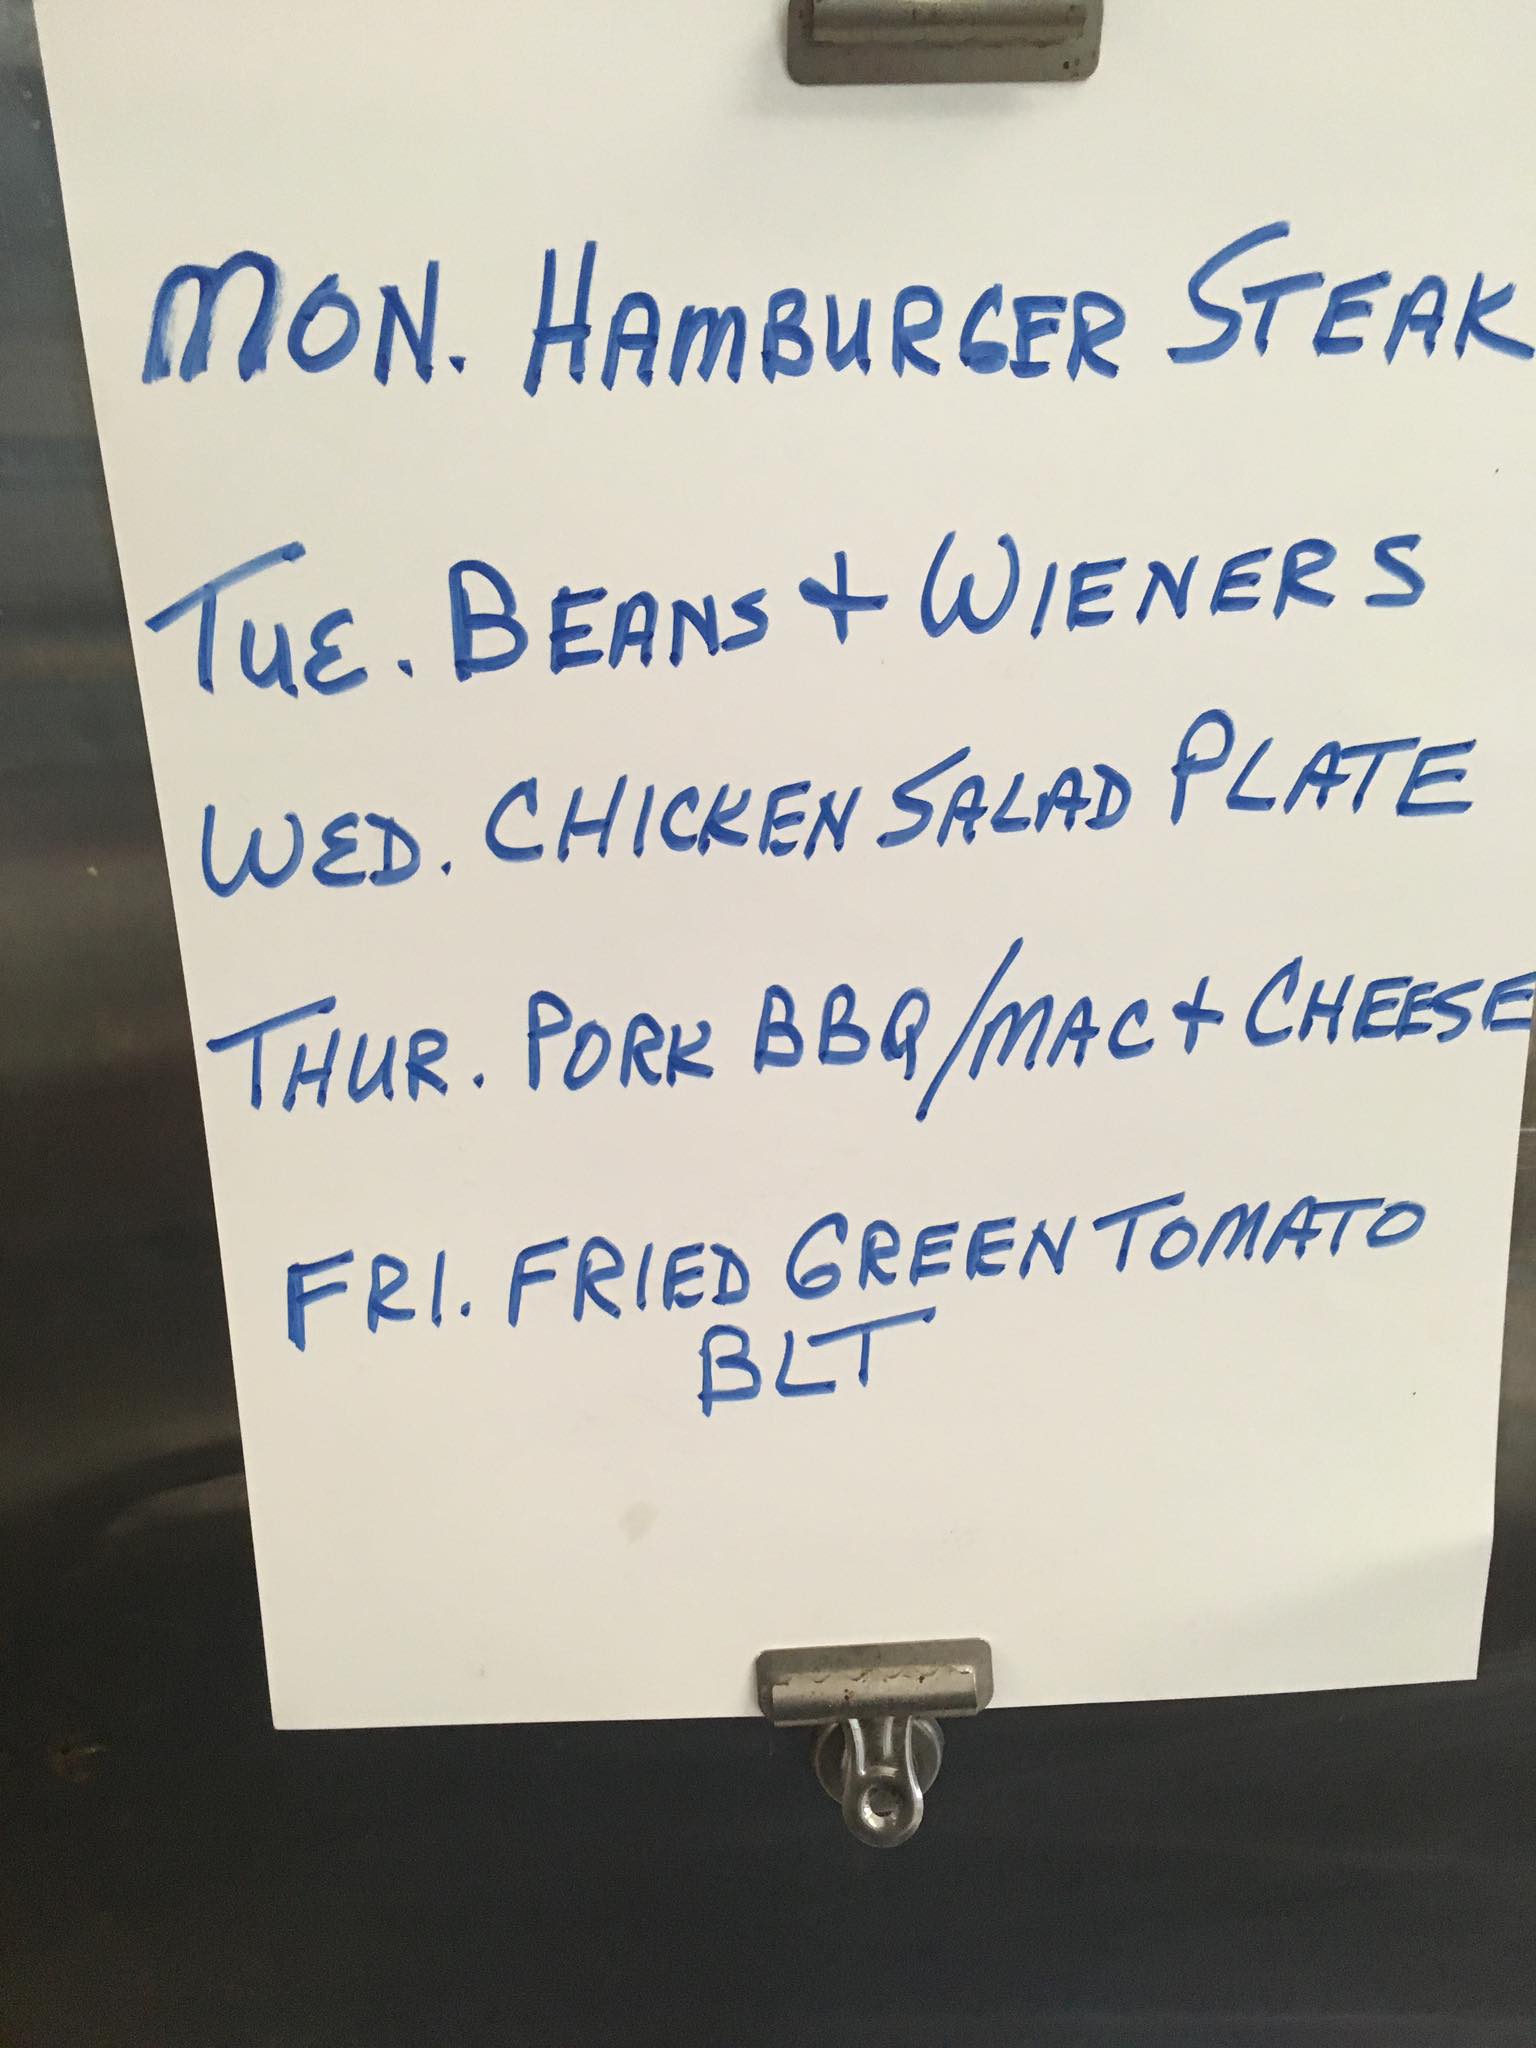 MON. HAMBURGER STEAK
TUE. BEANS + WIENERS
WED. CHICKEN SALAD PLATE
THUR. PORK BBQ/MAC + CHEESE
FRI. FRIED GREEN TOMATO
BLT